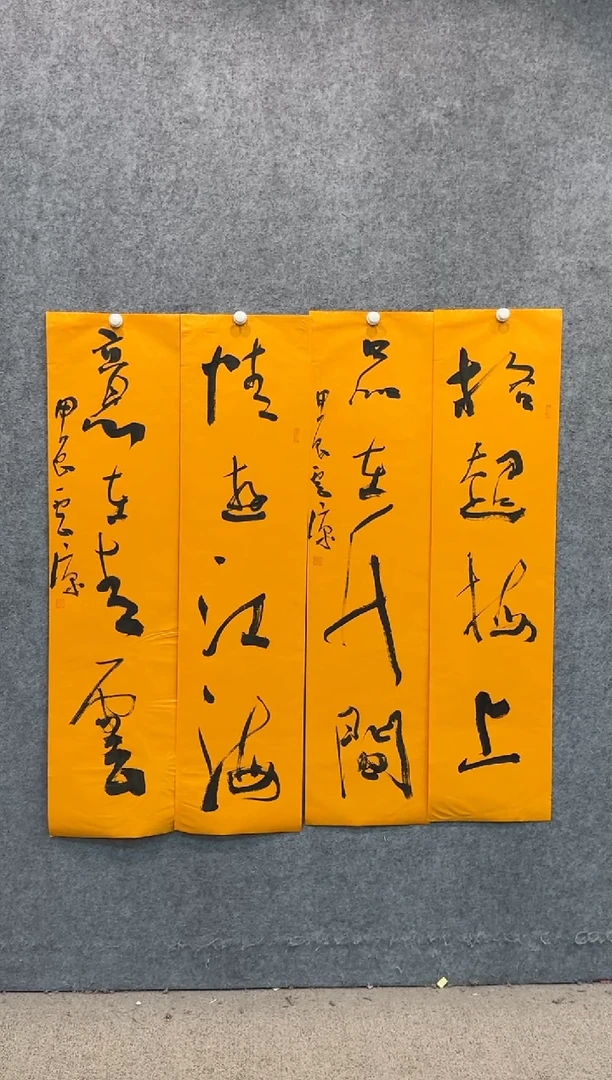 格超梅上
品在竹間
甲辰雲
情遊江海
意在青雲
甲辰雲